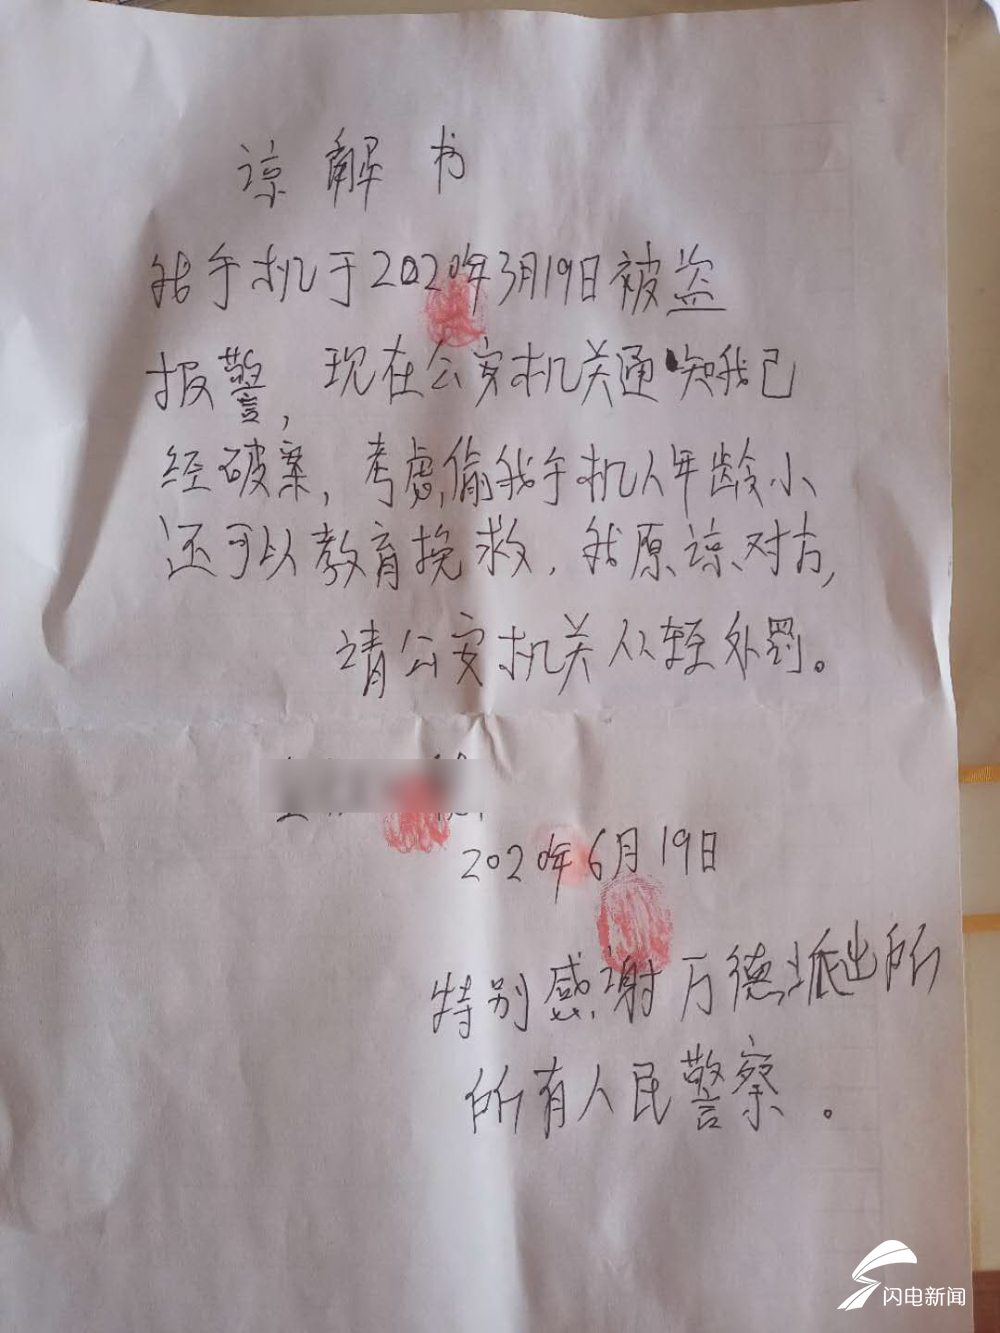 谅解书
我手机于2020年3月19日被盗
报警，现在公安机关通知我已
经破案，考虑偷我手机人年龄小
还可以教育挽救，我原谅对方，
请公安机关从轻处罚。
2020年6月19日
特别感谢万德派出所
所有人民警察。
闪电新闻